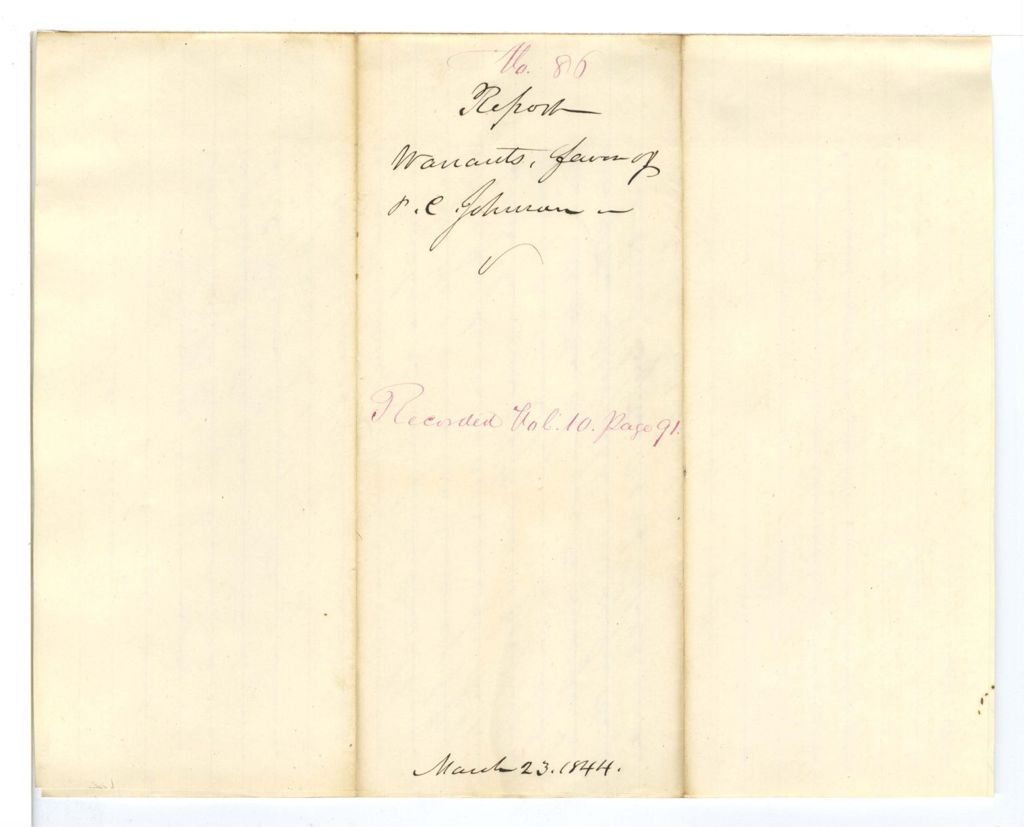 No. 86
Report
Warrants, favor of
P. C. Johnson
Recorded Vol. 10. Page 91.
March 23. 1844.